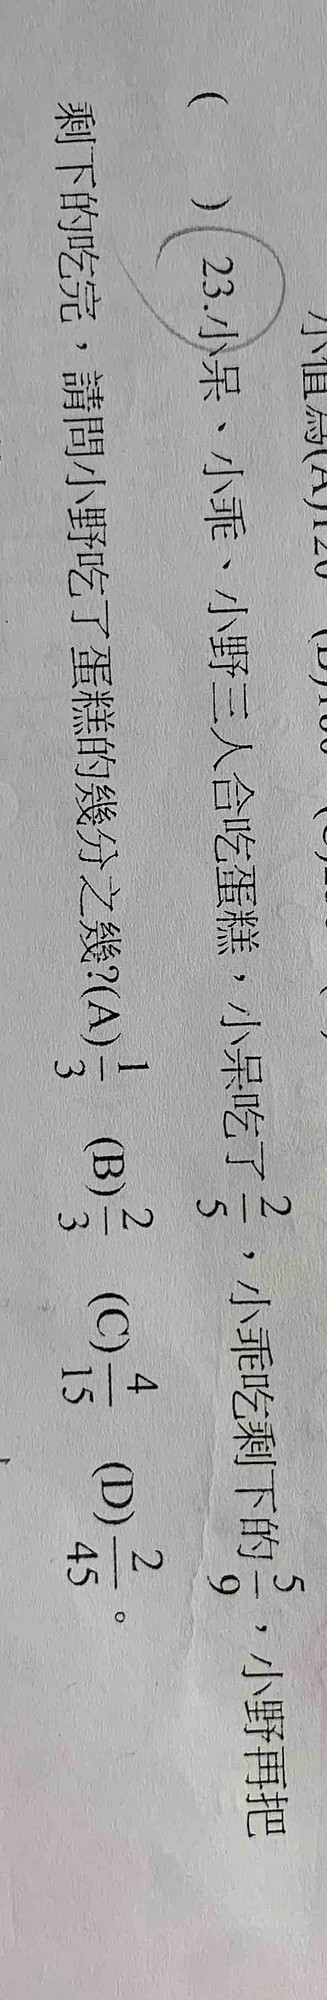 小值為(A)120
(　　) 23.小呆、小乖、小野三人合吃蛋糕，小呆吃了2/5，小乖吃剩下的5/9，小野再把
剩下的吃完，請問小野吃了蛋糕的幾分之幾?(A)1/3 (B)2/3 (C)4/15 (D)2/45。